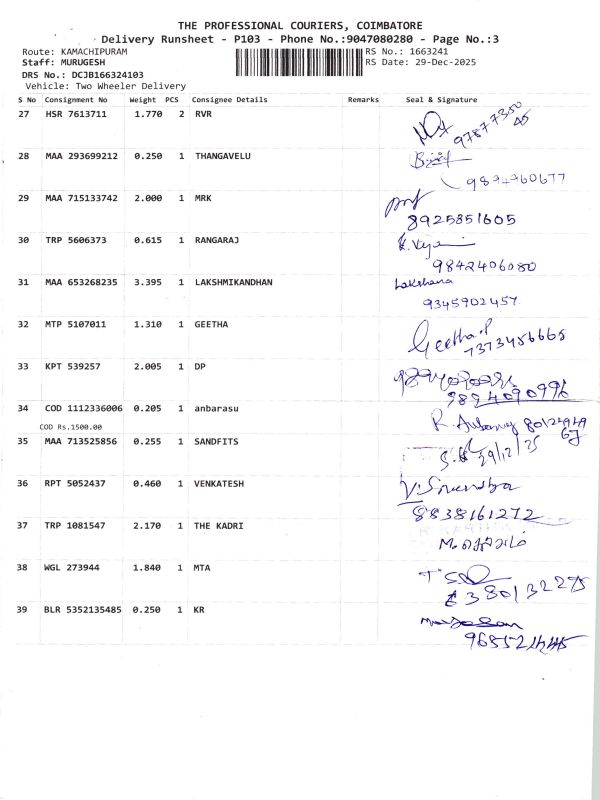 THE PROFESSIONAL COURIERS, COIMBATORE
Delivery Runsheet - P103 - Phone No.:9047080280 - Page No.:3
Route: KAMACHIPURAM RS No.: 1663241
Staff: MURUGESH RS Date: 29-Dec-2025
DRS No.: DCJB166324103
Vehicle: Two Wheeler Delivery
S No Consignment No Weight PCS Consignee Details Remarks Seal & Signature
27 HSR 7613711 1.770 2 RVR
28 MAA 293699212 0.250 1 THANGAVELU
9894960677
29 MAA 715133742 2.000 1 MRK
8925851605
30 TRP 5606373 0.615 1 RANGARAJ
9842406080
31 MAA 653268235 3.395 1 LAKSHMIKANDHAN Lakshana
9345902457
32 MTP 5107011 1.310 1 GEETHA
Geetha.P
7373456665
33 KPT 539257 2.005 1 DP
9894090996
34 COD 1112336006 0.205 1 anbarasu
COD Rs.1500.00
35 MAA 713525856 0.255 1 SANDFITS
29/12/25
36 RPT 5052437 0.460 1 VENKATESH
8838161272
37 TRP 1081547 2.170 1 THE KADRI
38 WGL 273944 1.840 1 MTA
39 BLR 5352135485 0.250 1 KR